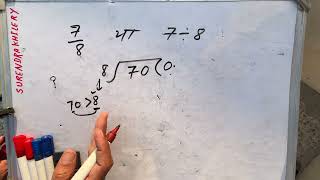 SURENDRA KHILERY
7/8 या 7÷8
8√70(0.
?
70>8